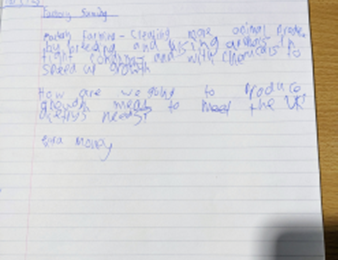 Factory farming
factory farming - creating more animal produce
by breeding and using animals in
tight conditions and with chemicals to
speed up growth
How are we going to produce
growth meat to meet the UK
needs?
extra money